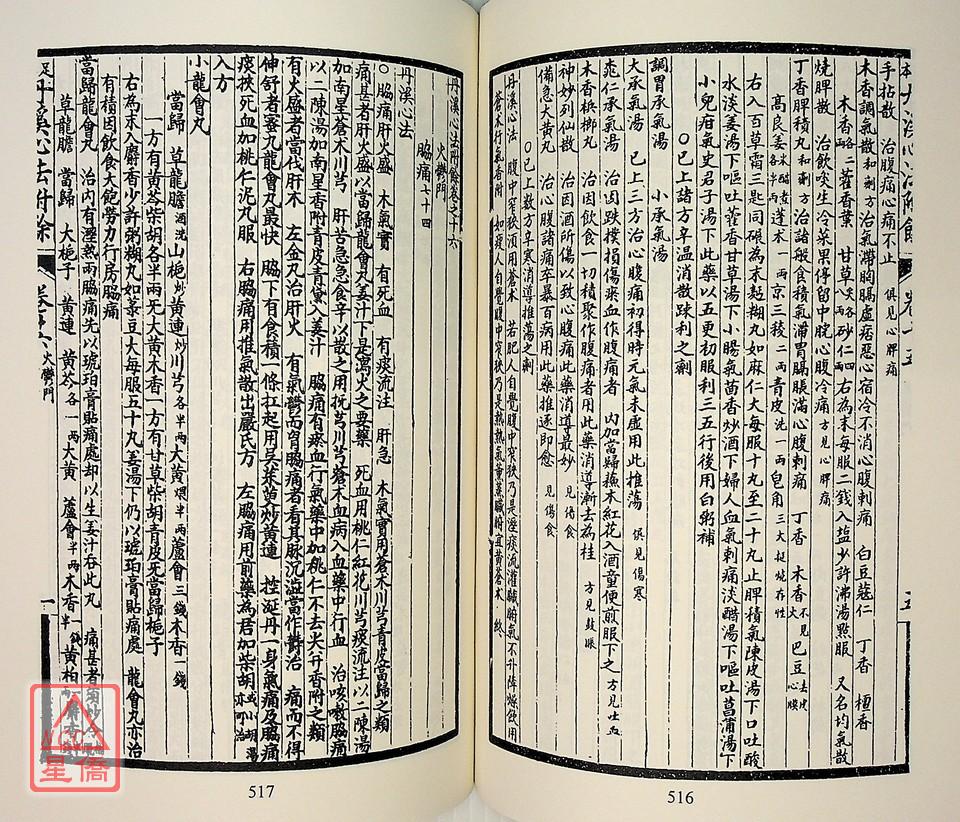 手拈散 治腹痛心痛不止 俱見心脾痛
木香調氣散 和劑方治氣滯胸膈虛痞惡心宿冷不消心腹刺痛 白豆蔻仁 丁香 檀香
木香各二兩 藿香葉 甘草各八兩 砂仁四兩 右為末每服二錢入盐少許沸湯點服 又名均氣散
燒脾散 治飲啖生冷菓果停留中脘心腹冷痛 方見心脾痛
丁香脾積丸 和劑方治諸般食積氣滯胃膈脹滿心腹刺痛 丁香 木香 巴豆
高良姜 蓬术 京三稜 青皮 皂角三大挺燒存性
右入百草霜三匙同碾為末麪糊丸如麻仁大每服十九至二十九止脾積氣陳皮湯下口吐酸
水淡姜湯下嘔吐藿香甘草湯下小腸氣茴香炒酒下婦人血氣刺痛淡醋湯下嘔吐菖蒲湯下
小兒疳氣史君子湯下此藥以五更初服利三五行後用白粥補
○已上諸方辛溫消散踈利之劑
調胃承氣湯 小承氣湯
大承氣湯 已上三方治心腹痛初得時元氣未虛用此推蕩 俱見傷寒
桃仁承氣湯 治因跌撲損傷瘀血作腹痛者 內加當歸蘇木紅花入酒童便煎服下之 方見吐血
木香梹榔丸 治因飲食一切積聚作腹痛者用此藥消導漸去為桂 方見鼓脹
神妙列仙散 治因酒所傷以致心腹痛此藥消導最妙 見傷食
備急大黃丸 治心腹諸痛卒暴百病用此藥推逐即愈 見傷食
○已上數方辛寒消導推蕩之劑
丹溪心法 腹中窄狹須用蒼术 若肥人自覺腹中窄狹乃是溼痰流灌臟腑氣不升降燥飲用
蒼术行氣香附 如瘦人自覺腹中窄狹乃是熱氣熏蒸臟腑宜黃蒼术 終
516
丹溪心法附餘卷之十六
火鬱門
脇痛七十四
丹溪心法
○脇痛肝火盛 木氣實 有死血 有痰流注 肝急 木氣實用蒼术川芎青皮當歸之類
痛甚者肝火盛以當歸龍會丸姜汁下是瀉火之要藥 死血用桃仁紅花川芎痰流注以二陳湯
加南星蒼术川芎 肝苦急急食辛以散之用撫芎川芎蒼术血病入血藥中行血 治咳嗽脇痛
以二陳湯加南星香附青皮青黛入姜汁 脇痛有瘀血行氣藥中加桃仁不去尖幷香附之類
有火盛者當伐肝木 左金丸治肝火 有氣鬱而胷脇痛者看其脉沉澁當作欝治 痛而不得
伸舒者蜜丸龍會丸最快 脇下有食積一條扛起用吳茱萸炒黃連 控涎丹一身氣痛及脇痛
痰挾死血加桃仁泥丸服 右脇痛用推氣散出嚴氏方 左脇痛用前藥為君加柴胡或小柴胡湯亦可治
入方
小龍會丸
當歸 草龍膽酒洗 山梔炒 黃連炒 川芎各半兩 大黃煨半兩 蘆會三錢 木香一錢
一方有黃芩柴胡各半兩无大黃木香一方有甘草柴胡青皮无當歸梔子
右為末入麝香少許粥糊丸如菉豆大每服五十丸姜湯下仍以琥珀膏貼痛處 龍會丸亦治
有積因飲食大飽勞力行房脇痛
當歸龍會丸 治內有溼熱兩脇痛先以琥珀膏貼痛處却以生姜汁吞此丸 痛甚者須炒令熱服
草龍膽 當歸 大梔子 黃連 黃芩各一兩 大黃 蘆會半兩 木香一錢 黃柏一兩
丹溪心法附餘 卷之十六 火鬱門 一
517
NCC
星僑